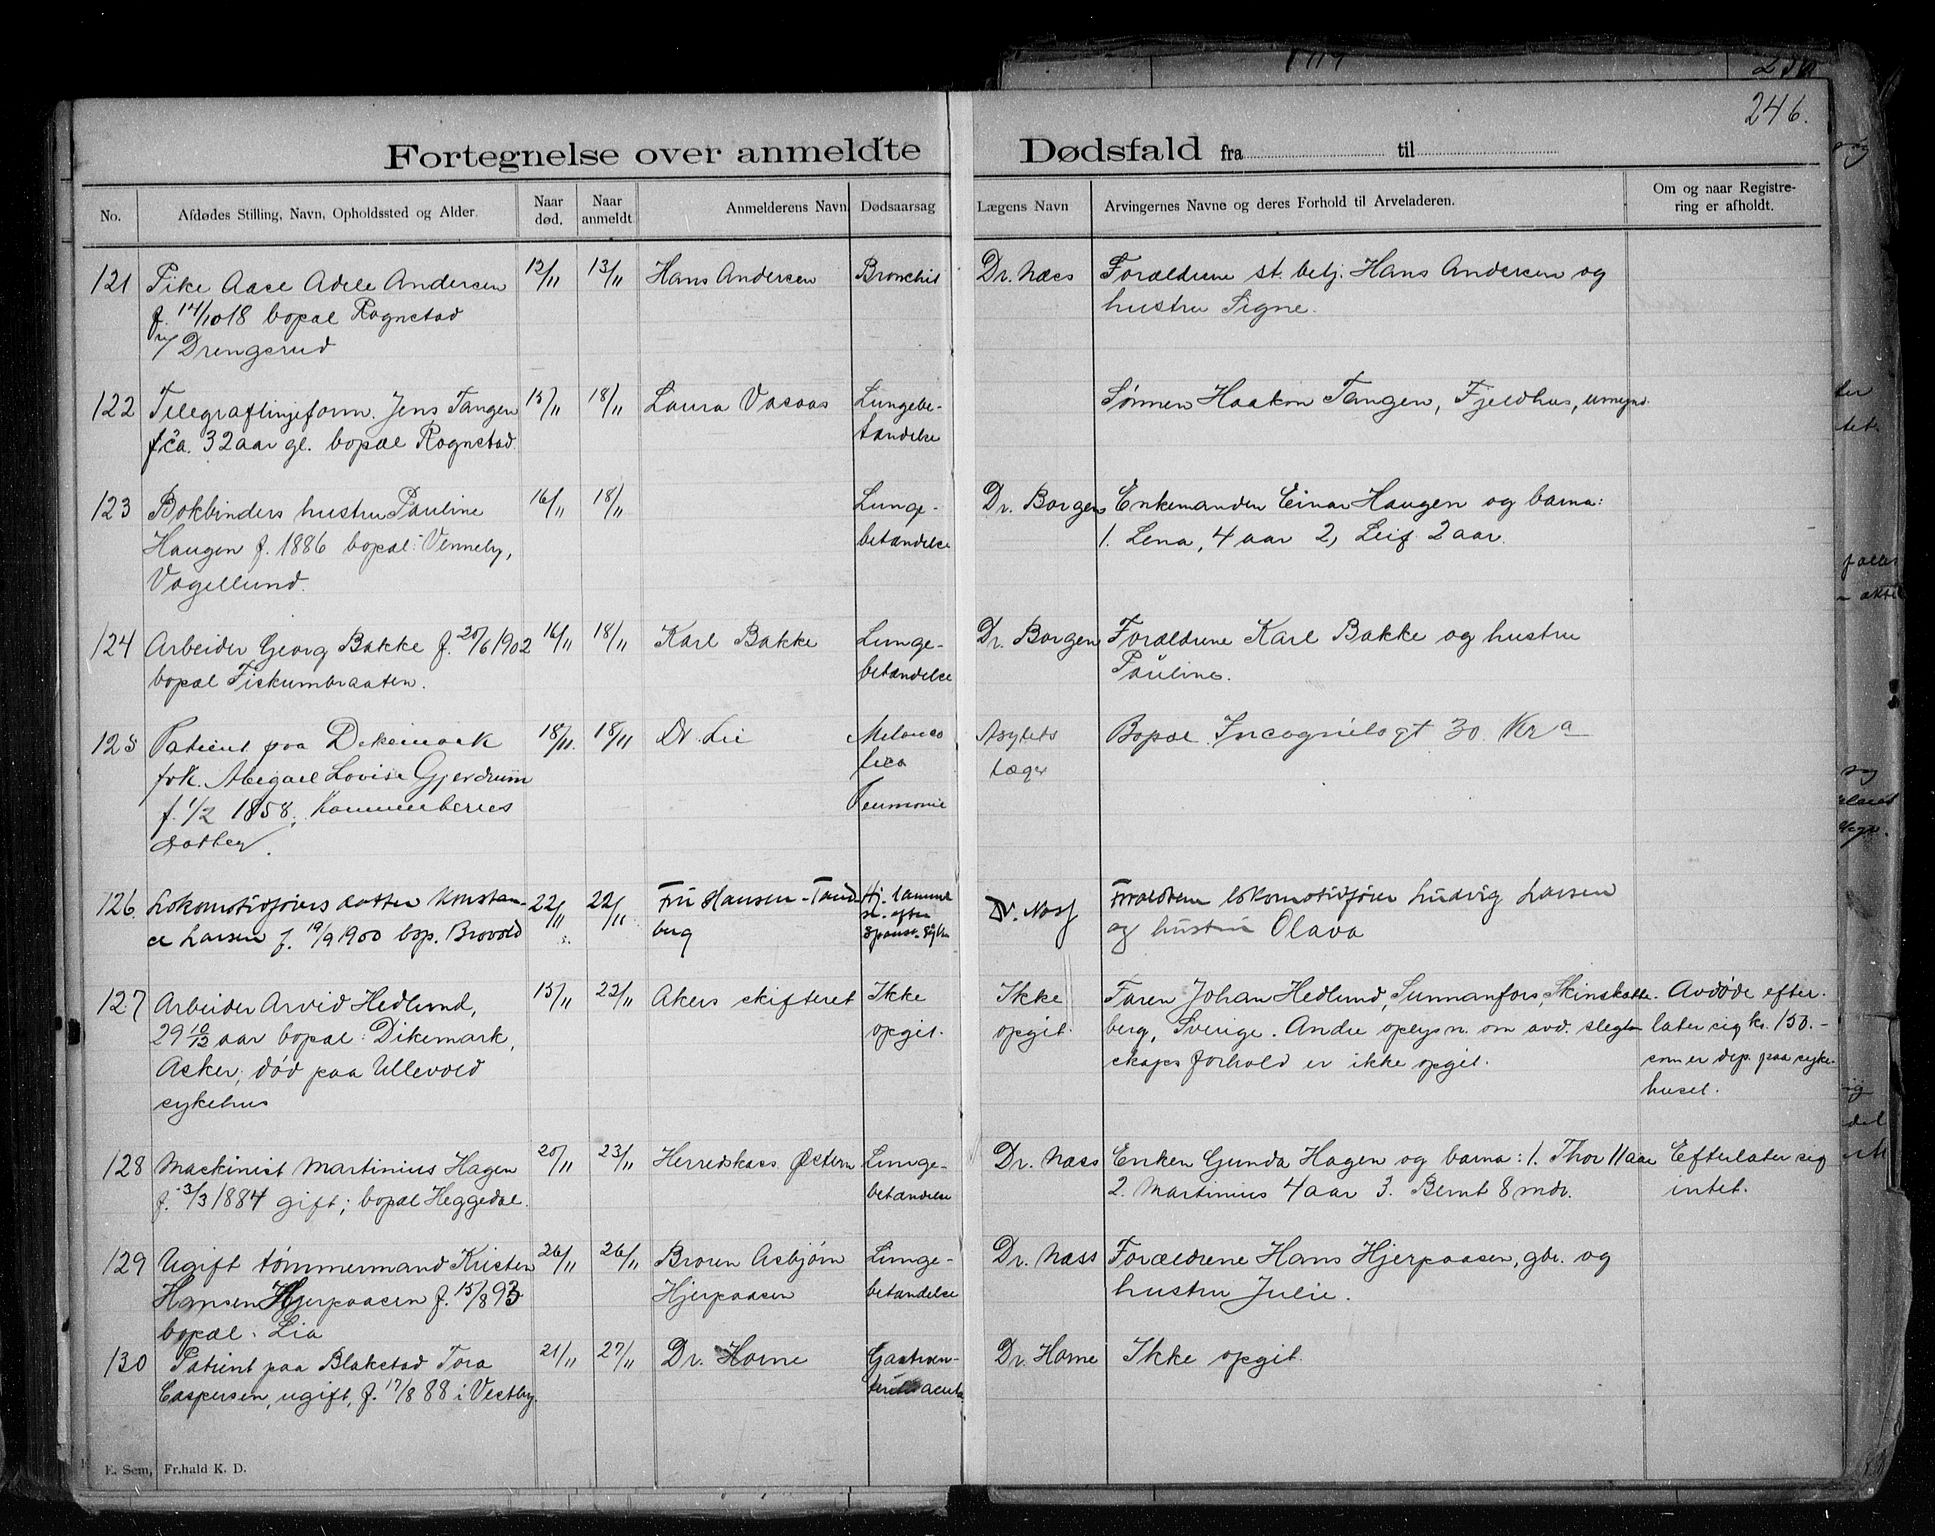 246.
Fortegnelse over anmeldte Dødsfald fra til
No.
Afdødes Stilling, Navn, Opholdssted og Alder.
Naar død.
Naar anmeldt
Anmelderens Navn
Dødsaarsag
Lægens Navn
Arvingernes Navne og deres Forhold til Arveladeren.
Om og naar Registre-
ring er afholdt.
121 Pike Aase Adele Andersen 12/11 13/11 Hans Andersen Bronchit Dr. Næss Forældrene st. betj. Hans Andersen og
f. 14/10 18 bopæl Rognstad hustru Signe.
v/ Drengsrud
122 Telegraflinjeform. Jens Tangen 15/11 18/11 Laura Vasaas Lungebe- Sønnen Haakon Tangen, Fjeldhus, umynd.
f. ca. 32 aar gl. bopæl Rognstad tændelse
123 Bokbinders hustru Pauline 16/11 18/11 Lunge- Dr. Borgen Enkemanden Einar Haugen og barna:
Haugen f. 1886 bopæl: Venneby, betændelse 1. Lena, 4 aar 2, Leif 2 aar.
Vogellund.
124 Arbeider Georg Bakke f. 20/6 1902 16/11 18/11 Karl Bakke Lunge- Dr. Borgen Forældrene Karl Bakke og hustru
bopæl Fiskumbraaten. betændelse Pauline.
125 Patient paa Dikemark 18/11 18/11 Dr. Lie Melanco Asylets Bopæl Incognitogt 30 Kr a
frk. Abigael Lovise Gjerdrum lica læger
f. 1/2 1858, Kammerherres Pneumonie
datter.
126 Lokomotivførers datter Konstan- 22/11 22/11 Fru Hansen-Tand Hj. lammel Dr. Næss Forældrene lokomotivfører Ludvig Larsen
ce Larsen f. 19/9 1900 bop. Brovold berg se efter og hustru Olava
spansk syke
127 Arbeider Arvid Hedlund, 15/11 22/11 Akers skifteret Ikke Ikke Faren Johan Hedlund, Sunnanfors, Skinskatte- Avdøde efter-
29 10/12 aar bopæl: Dikemark, opgit. opgit. berg, Sverige. Andre oplysn. om avd. slegtn later sig kr. 150.-
Asker, død paa Ullevold skaps forhold er ikke opgit. som er dep. paa syke-
sykehus huset.
128 Maskinist Martinius Hagen 20/11 23/11 Herredskass. Østern Lunge- Dr. Næss Enken Gunda Hagen og barna: 1. Thor 11 aar Efterlater sig
f. 3/3 1884 gift; bopæl Heggedal. betændelse 2. Martinius 4 aar 3. Bernt 8 mdr. intet.
129 Ugift tømmermand Kristen 26/11 26/11 Broren Asbjørn Lunge- Dr. Næss Forældrene Hans Hjerpaasen, gbr. og
Hansen Hjerpaasen f. 15/8 93 Hjerpaasen betændelse hustru Julie.
bopæl: Lia
130 Patient paa Blakstad Tora 21/11 27/11 Dr. Horne Gastroen- Dr. Horne Ikke opgit.
Caspersen, ugift, f. 17/8 88 i Vestby. acuta
E. Sem, Fr.hald K. D.